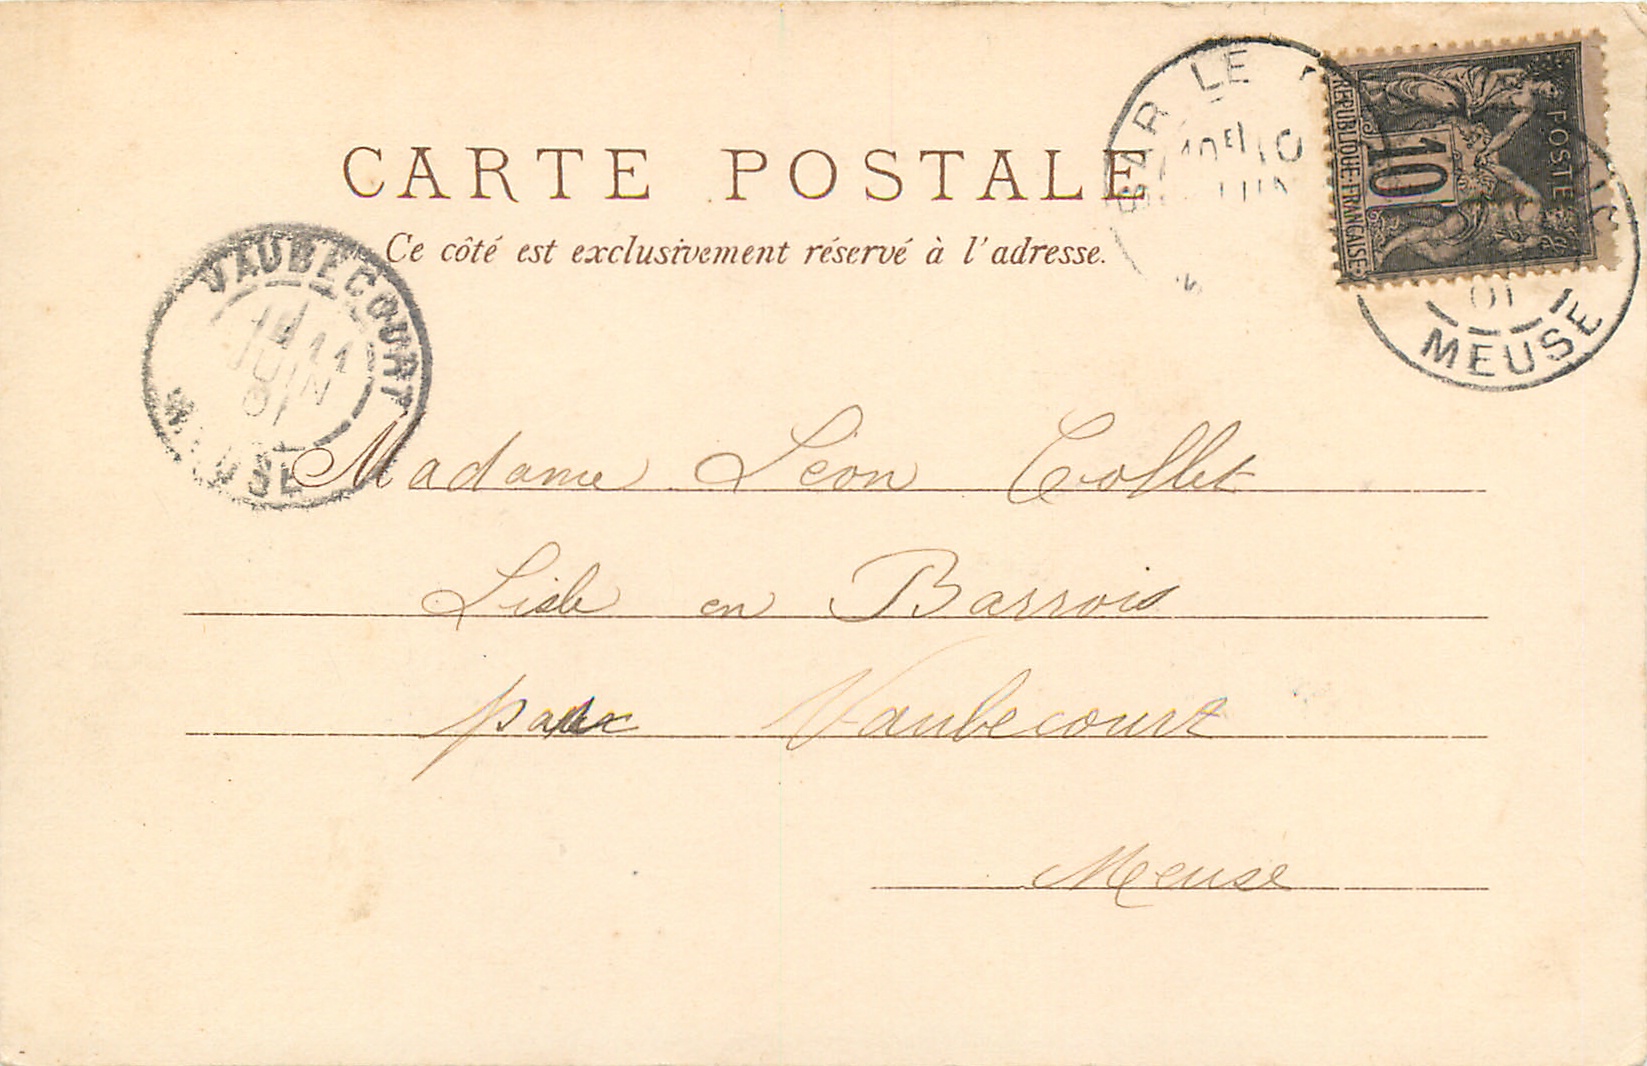 CARTE POSTALE
Ce côté est exclusivement réservé à l'adresse.
BAR LE
10
JUIN
01
MEUSE
POSTE
10
REPUBLIQUE FRANÇAISE
VAUBECOURT
11
JUIN
01
MEUSE
Madame Léon Collet
Lisle en Barrois
par Vaubecourt
Meuse